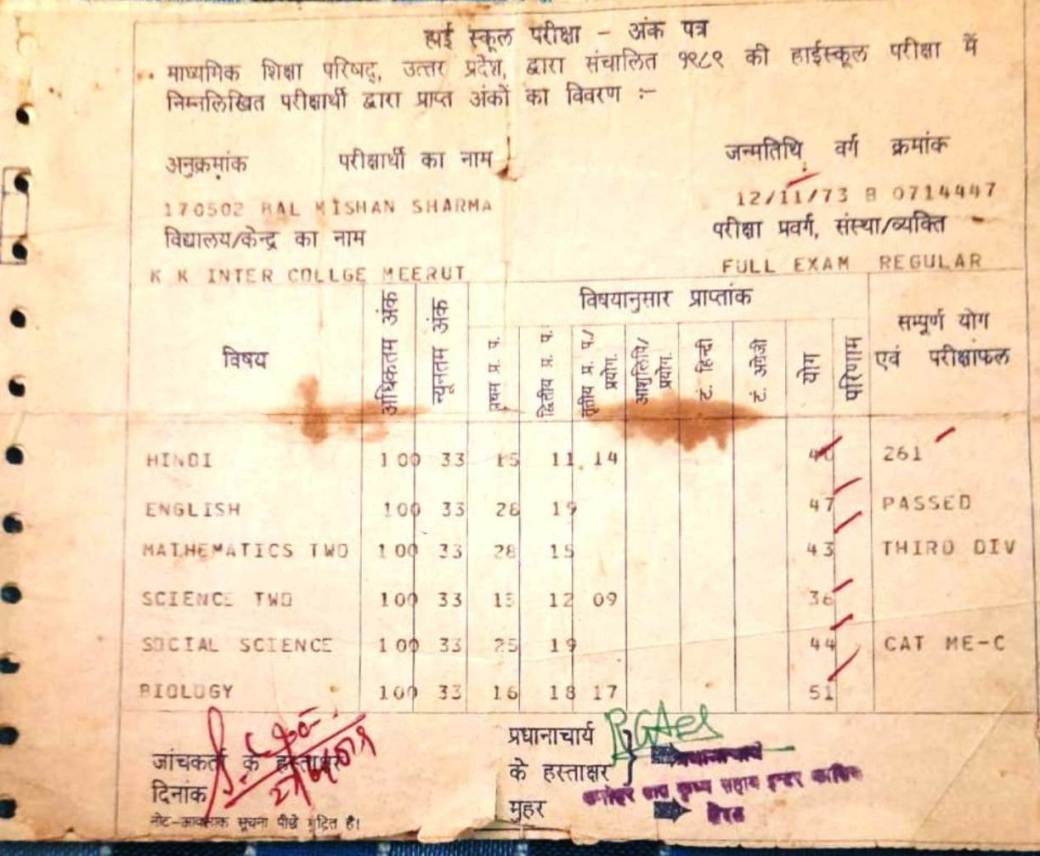 हाई स्कूल परीक्षा - अंक पत्र
माध्यमिक शिक्षा परिषद्, उत्तर प्रदेश, द्वारा संचालित १९८९ की हाईस्कूल परीक्षा में
निम्नलिखित परीक्षार्थी द्वारा प्राप्त अंकों का विवरण :-
अनुक्रमांक परीक्षार्थी का नाम जन्मतिथि वर्ग क्रमांक
170502 BAL KISHAN SHARMA 12/11/73 B 0714447
विद्यालय/केन्द्र का नाम परीक्षा प्रवर्ग, संस्था/व्यक्ति
K K INTER COLLGE MEERUT FULL EXAM REGULAR
विषय अधिकतम अंक न्यूनतम अंक विषयानुसार प्राप्तांक सम्पूर्ण योग एवं परीक्षाफल
प्रथम प्र. प. द्वितीय प्र. प. तृतीय प्र. प./प्रयोग. आशुलिपि/प्रयोग. टं. हिन्दी टं. अंग्रेजी योग परिणाम
HINDI 100 33 15 11 14 261
ENGLISH 100 33 28 19 47 PASSED
MATHEMATICS TWO 100 33 28 15 43 THIRD DIV
SCIENCE TWO 100 33 15 12 09 36
SOCIAL SCIENCE 100 33 25 19 44 CAT ME-C
BIOLOGY 100 33 16 18 17 51
जांचकर्ता के हस्ताक्षर
दिनांक
नोट-आवश्यक सूचना पीछे मुद्रित है।
प्रधानाचार्य
के हस्ताक्षर
मुहर
प्रधानाचार्य
कृष्ण सहाय इन्टर कालिज
मेरठ